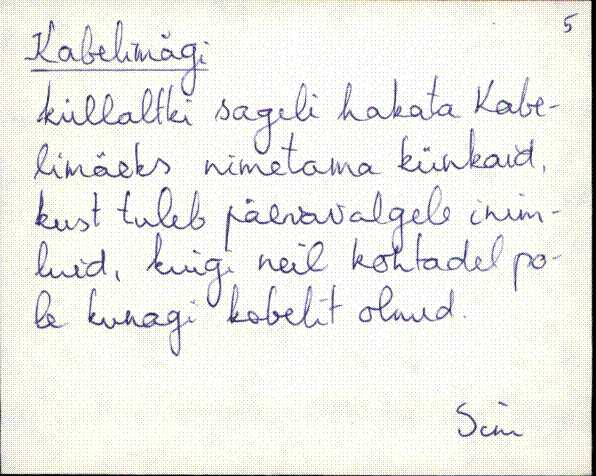 5
Kabelimägi
küllaltki sageli hakata Kabe-
limäeks nimetama künkaid,
kust tuleb päevavalgele inim-
luid, kuigi neil kohtadel po-
le kunagi kabelit olnud.